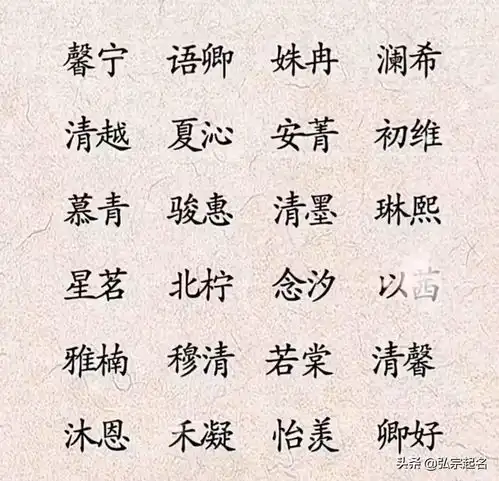 馨宁 语卿 姝冉 澜希
清越 夏沁 安菁 初维
慕青 骏惠 清墨 琳熙
星茗 北柠 念汐 以茜
雅楠 穆清 若棠 清馨
沐恩 禾凝 怡羙 卿好
头条 @弘宗起名